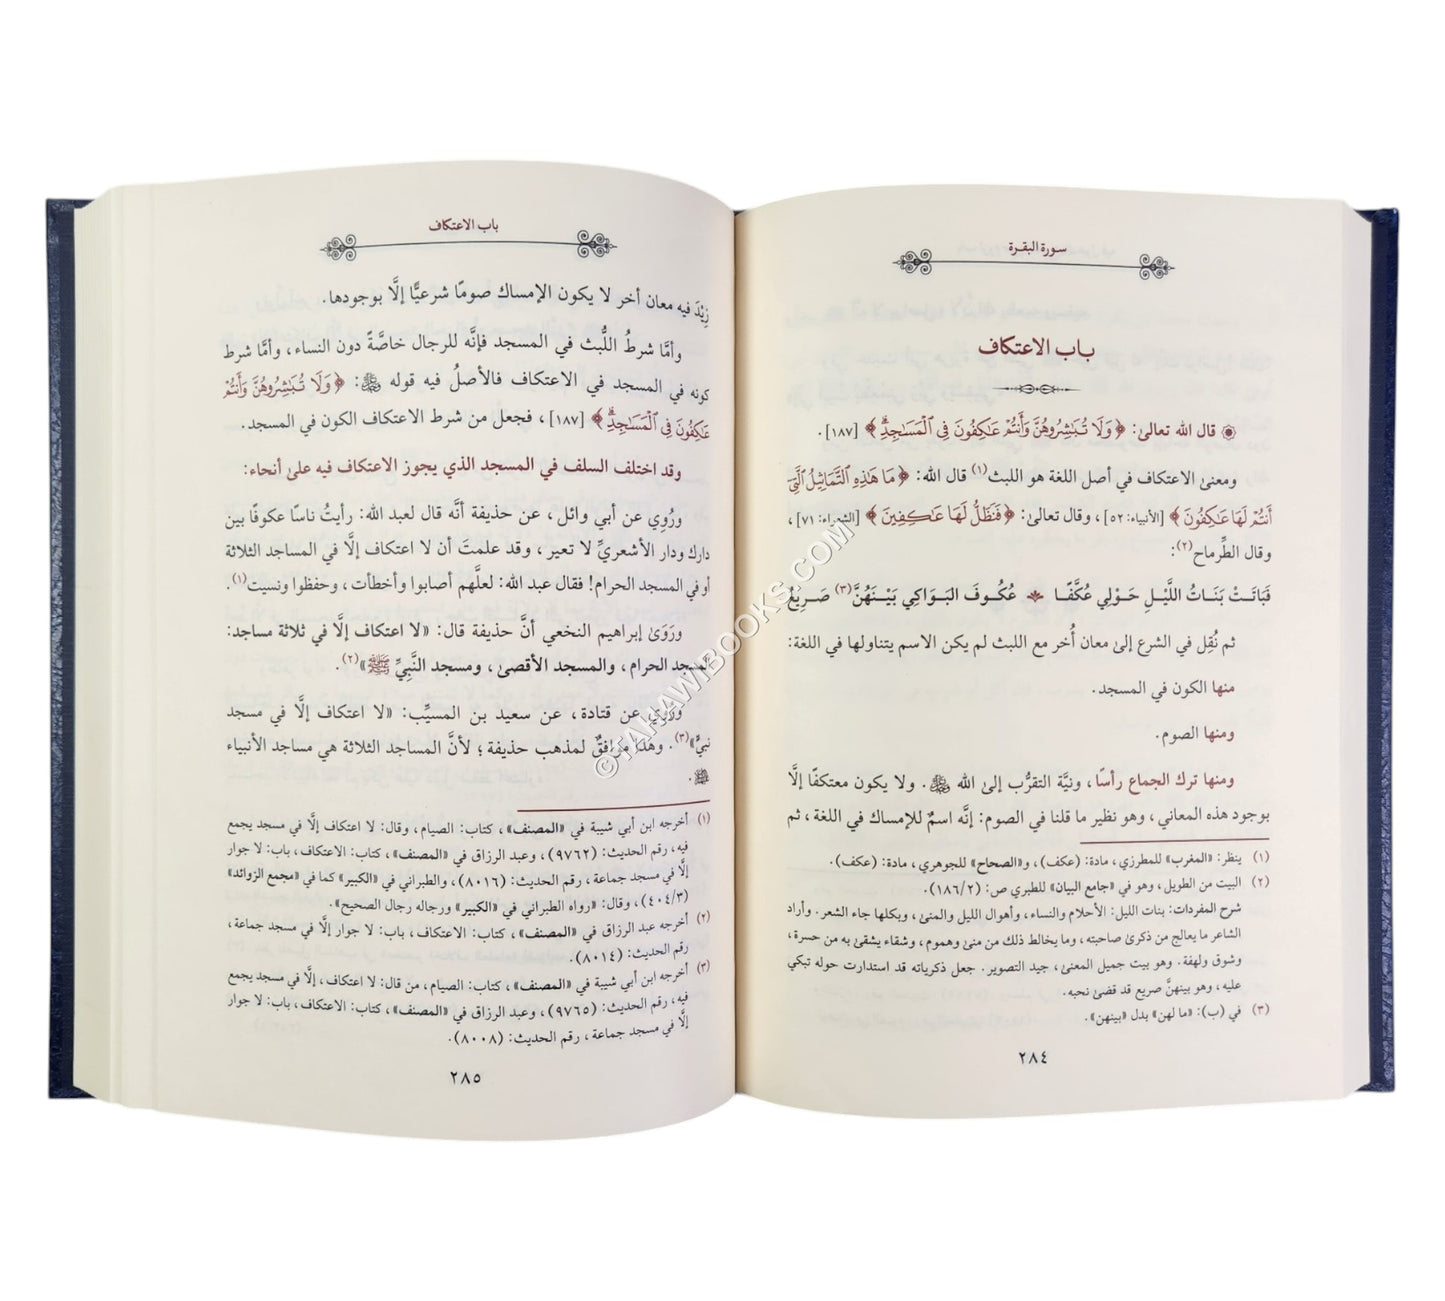 سورة البقرة
باب الاعتكاف
قال الله تعالىٰ: ﴿وَلَا تُبَٰشِرُوهُنَّ وَأَنتُمْ عَٰكِفُونَ فِى ٱلْمَسَٰجِدِ﴾ [١٨٧].
ومعنىٰ الاعتكاف في أصل اللغة هو اللبث(١) قال الله: ﴿مَا هَٰذِهِ ٱلتَّمَاثِيلُ ٱلَّتِىٓ
أَنتُمْ لَهَا عَٰكِفُونَ﴾ [الأنبياء: ٥٢]، وقال تعالىٰ: ﴿فَنَظَلُّ لَهَا عَٰكِفِينَ﴾ [الشعراء: ٧١]،
وقال الطِّرماح(٢):
فَبَاتَـتْ بَنَـاتُ اللَّيْـلِ حَـوْلِي عُكَّفًـا عُكُـوفَ البَـوَاكِي بَيْـنَهُنَّ(٣) صَـرِيعُ
ثم نُقِل في الشرع إلىٰ معان أُخر مع اللبث لم يكن الاسم يتناولها في اللغة:
منها الكون في المسجد.
ومنها الصوم.
ومنها ترك الجماع رأسًا، ونيَّة التقرُّب إلىٰ الله ﷻ. ولا يكون معتكفًا إلَّا
بوجود هذه المعاني، وهو نظير ما قلنا في الصوم: إنَّه اسمٌ للإمساك في اللغة، ثم
(١) ينظر: «المغرب» للمطرزي، مادة: (عكف)، و«الصحاح» للجوهري، مادة: (عكف).
(٢) البيت من الطويل، وهو في «جامع البيان» للطبري ص: (١٨٦/٢).
شرح المفردات: بنات الليل: الأحلام والنساء، وأهوال الليل والمنىٰ، وبكلها جاء الشعر. وأراد
الشاعر ما يعالج من ذكرىٰ صاحبته، وما يخالط ذلك من منىٰ وهموم، وشقاء يشقىٰ به من حسرة،
وشوق ولهفة. وهو بيت جميل المعنىٰ، جيد التصوير. جعل ذكرياته قد استدارت حوله تبكي
عليه، وهو بينهنَّ صريع قد قضىٰ نحبه.
(٣) في (ب): «ما لهن» بدل «بينهن».
٢٨٤
باب الاعتكاف
زِيْدَ فيه معان أخر لا يكون الإمساك صومًا شرعيًّا إلَّا بوجودها.
وأمَّا شرطُ اللُّبث في المسجد فإنَّه للرجال خاصَّةً دون النساء، وأمَّا شرط
كونه في المسجد في الاعتكاف فالأصلُ فيه قوله ﷻ: ﴿وَلَا تُبَٰشِرُوهُنَّ وَأَنتُمْ
عَٰكِفُونَ فِى ٱلْمَسَٰجِدِ﴾ [١٨٧]، فجعل من شرط الاعتكاف الكون في المسجد.
وقد اختلف السلف في المسجد الذي يجوز الاعتكاف فيه علىٰ أنحاء:
ورُوِي عن أبي وائل، عن حذيفة أنَّه قال لعبد الله: رأيتُ ناسًا عكوفًا بين
دارك ودار الأشعريِّ لا تعير، وقد علمتَ أن لا اعتكاف إلَّا في المساجد الثلاثة
أو في المسجد الحرام! فقال عبد الله: لعلَّهم أصابوا وأخطأت، وحفظوا ونسيت(١).
ورَوَىٰ إبراهيم النخعي أنَّ حذيفة قال: «لا اعتكاف إلَّا في ثلاثة مساجد:
المسجد الحرام، والمسجد الأقصىٰ، ومسجد النَّبيِّ ﷺ»(٢).
ورُوِي عن قتادة، عن سعيد بن المسيِّب: «لا اعتكاف إلَّا في مسجد
نبيٍّ»(٣). وهذا موافقٌ لمذهب حذيفة؛ لأنَّ المساجد الثلاثة هي مساجد الأنبياء
.
(١) أخرجه ابن أبي شيبة في «المصنف»، كتاب: الصيام، وقال: لا اعتكاف إلَّا في مسجد يجمع
فيه، رقم الحديث: (٩٧٦٢)، وعبد الرزاق في «المصنف»، كتاب: الاعتكاف، باب: لا جوار
إلَّا في مسجد جماعة، رقم الحديث: (٨٠١٦)، والطبراني في «الكبير» كما في «مجمع الزوائد»
(٤٠٤/٣)، وقال: «رواه الطبراني في «الكبير» ورجاله رجال الصحيح».
(٢) أخرجه عبد الرزاق في «المصنف»، كتاب: الاعتكاف، باب: لا جوار إلَّا في مسجد جماعة،
رقم الحديث: (٨٠١٤).
(٣) أخرجه ابن أبي شيبة في «المصنف»، كتاب: الصيام، من قال: لا اعتكاف، إلَّا في مسجد يجمع
فيه، رقم الحديث: (٩٧٦٥)، وعبد الرزاق في «المصنف»، كتاب: الاعتكاف، باب: لا جوار
إلَّا في مسجد جماعة، رقم الحديث: (٨٠٠٨).
٢٨٥
©TAHAWIBOOKS.COM